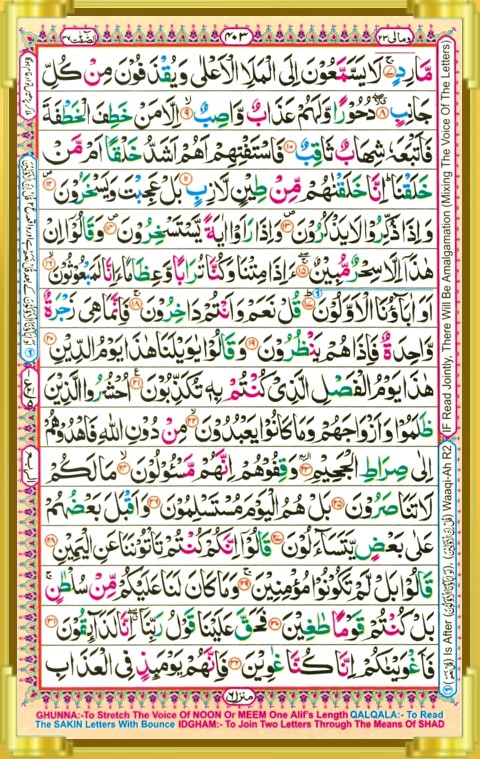 وَمَالِیَ ٢٣
٤٠٣
اَلصّٰٓفّٰت ٣٧
مَّارِدٍ ۚ﴿۷﴾ لَا یَسَّمَّعُوْنَ اِلَی الْمَلَاِ الْاَعْلٰی وَیُقْذَفُوْنَ مِنْ كُلِّ
جَانِبٍ ﴿۸﴾ دُحُوْرًا وَّلَهُمْ عَذَابٌ وَّاصِبٌ ﴿۹﴾ اِلَّا مَنْ خَطِفَ الْخَطْفَةَ
فَاَتْبَعَهٗ شِهَابٌ ثَاقِبٌ ﴿۱۰﴾ فَاسْتَفْتِهِمْ اَهُمْ اَشَدُّ خَلْقًا اَمْ مَّنْ
خَلَقْنَا ؕ اِنَّا خَلَقْنٰهُمْ مِّنْ طِیْنٍ لَّازِبٍ ﴿۱۱﴾ بَلْ عَجِبْتَ وَیَسْخَرُوْنَ ﴿۱۲﴾
وَاِذَا ذُكِّرُوْا لَا یَذْكُرُوْنَ ﴿۱۳﴾ وَاِذَا رَاَوْا اٰیَةً یَّسْتَسْخِرُوْنَ ﴿۱۴﴾ وَقَالُوْۤا اِنْ
هٰذَاۤ اِلَّا سِحْرٌ مُّبِیْنٌ ﴿۱۵﴾ ءَاِذَا مِتْنَا وَكُنَّا تُرَابًا وَّعِظَامًا ءَاِنَّا لَمَبْعُوْثُوْنَ ﴿۱۶﴾
اَوَاٰبَآؤُنَا الْاَوَّلُوْنَ ﴿۱۷﴾ قُلْ نَعَمْ وَاَنْتُمْ دَاخِرُوْنَ ﴿۱۸﴾ فَاِنَّمَا هِیَ زَجْرَةٌ
وَّاحِدَةٌ فَاِذَا هُمْ یَنْظُرُوْنَ ﴿۱۹﴾ وَقَالُوْا یٰوَیْلَنَا هٰذَا یَوْمُ الدِّیْنِ ﴿۲۰﴾
هٰذَا یَوْمُ الْفَصْلِ الَّذِیْ كُنْتُمْ بِهٖ تُكَذِّبُوْنَ ﴿۲۱﴾ اُحْشُرُوا الَّذِیْنَ
ظَلَمُوْا وَاَزْوَاجَهُمْ وَمَا كَانُوْا یَعْبُدُوْنَ ﴿۲۲﴾ مِنْ دُوْنِ اللّٰهِ فَاهْدُوْهُمْ
اِلٰی صِرَاطِ الْجَحِیْمِ ﴿۲۳﴾ وَقِفُوْهُمْ اِنَّهُمْ مَّسْـُٔوْلُوْنَ ﴿۲۴﴾ مَا لَكُمْ
لَا تَنَاصَرُوْنَ ﴿۲۵﴾ بَلْ هُمُ الْیَوْمَ مُسْتَسْلِمُوْنَ ﴿۲۶﴾ وَاَقْبَلَ بَعْضُهُمْ
عَلٰی بَعْضٍ یَّتَسَآءَلُوْنَ ﴿۲۷﴾ قَالُوْۤا اِنَّكُمْ كُنْتُمْ تَاْتُوْنَنَا عَنِ الْیَمِیْنِ ﴿۲۸﴾
قَالُوْا بَلْ لَّمْ تَكُوْنُوْا مُؤْمِنِیْنَ ﴿۲۹﴾ وَمَا كَانَ لَنَا عَلَیْكُمْ مِّنْ سُلْطٰنٍ
بَلْ كُنْتُمْ قَوْمًا طٰغِیْنَ ﴿۳۰﴾ فَحَقَّ عَلَیْنَا قَوْلُ رَبِّنَاۤ اِنَّا لَذَآئِقُوْنَ ﴿۳۱﴾
فَاَغْوَیْنٰكُمْ اِنَّا كُنَّا غٰوِیْنَ ﴿۳۲﴾ فَاِنَّهُمْ یَوْمَئِذٍ فِی الْعَذَابِ
منزل ٦
IF Read Jointly, There Will Be Amalgamation (Mixing The Voice Of The Letters)
Is After Waaqi-Ah R2
GHUNNA:-To Stretch The Voice Of NOON Or MEEM One Alif's Length QALQALA:- To Read
The SAKIN Letters With Bounce IDGHAM:- To Join Two Letters Through The Means Of SHAD